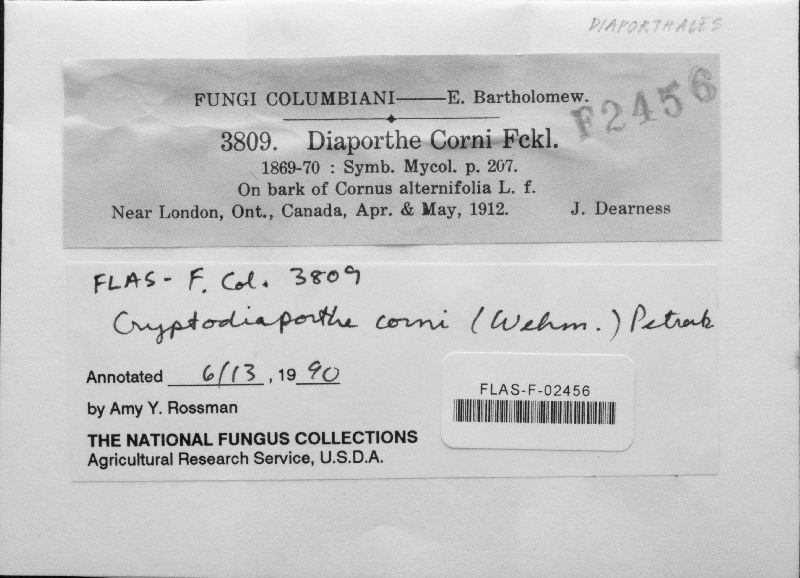 DIAPORTHALES
FUNGI COLUMBIANI——E. Bartholomew.
F2456
3809. Diaporthe Corni Fckl.
1869-70 : Symb. Mycol. p. 207.
On bark of Cornus alternifolia L. f.
Near London, Ont., Canada, Apr. & May, 1912. J. Dearness
FLAS - F. Col. 3809
Cryptodiaporthe corni (Wehm.) Petrak
Annotated 6/13, 1990
by Amy Y. Rossman
THE NATIONAL FUNGUS COLLECTIONS
Agricultural Research Service, U.S.D.A.
FLAS-F-02456